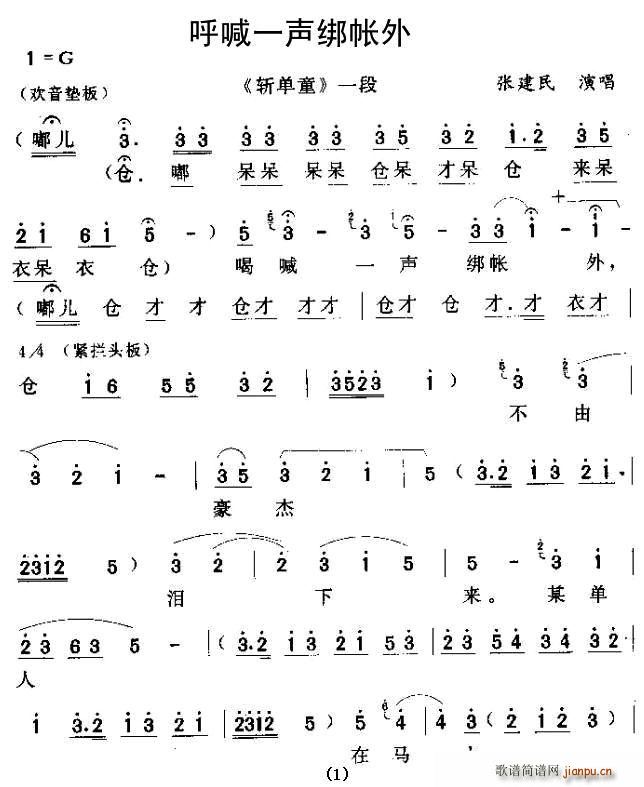 呼喊一声绑帐外
1 = G
(欢音垫板) 《斩单童》一段 张建民 演唱
( 嘟儿 3. 3 3 3 3 3 3 3 5 3 2 1. 2 3 5
(仓. 嘟 呆呆 呆呆 仓呆 才呆 仓 来呆
2 1 6 1 5 - ) 5 5 3 - 3 5 - 3 3 1 - 1 -
衣呆 衣 仓) 喝 喊 一 声 绑帐 外,
( 嘟儿 仓 才 才 仓才 才才 | 仓才 仓 才. 才 衣才 |
4/4 (紧拦头板)
仓 1 6 5 5 3 2 | 3523 1 ) 5 3 3 |
不 由
3 2 1 - | 3 5 3 2 1 | 5 ( 3.2 1 3 2 1 |
豪 杰
2312 5 ) 3 2 | 2 3 1 5 | 5 - 2 3 1 |
泪 下 来。 某 单
2 3 6 3 5 - | ( 3.2 1 3 2 1 5 3 | 2 3 5 4 3 4 3 2 |
人
1 3.2 1 3 2 1 | 2312 5 ) 5 6 4 | 4 3 ( 2 1 3 2 |
在 马
(1)
歌谱简谱网 jianpu.cn